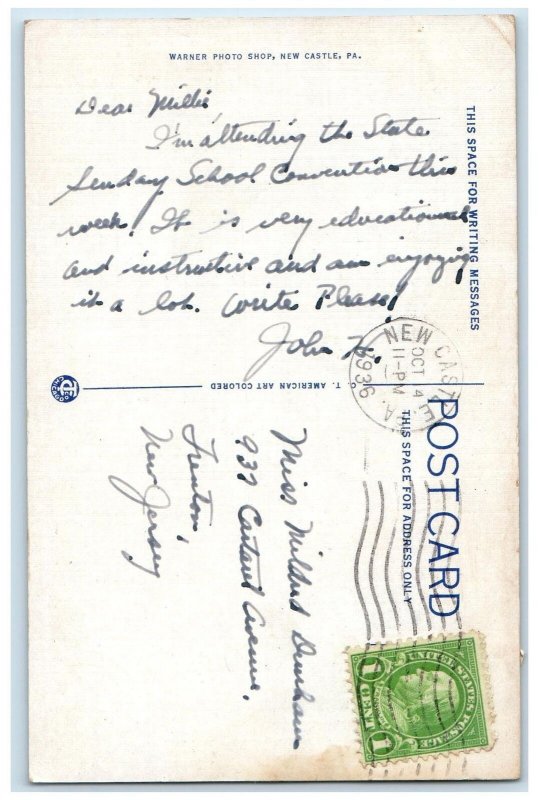 WARNER PHOTO SHOP, NEW CASTLE, PA.
Dear Millie,
I'm attending the State
Sunday School Convention this
week. It is very educational
and instructive and am enjoying
it a lot. Write Please!
John H.
THIS SPACE FOR WRITING MESSAGES
C. T. AMERICAN ART COLORED
POST CARD
THIS SPACE FOR ADDRESS ONLY
NEW CASTLE, PA.
OCT 4
11-PM
1936
Miss Mildred Dunham
937 Carteret Avenue,
Trenton,
New Jersey
UNITED STATES POSTAGE
1 CENT 1